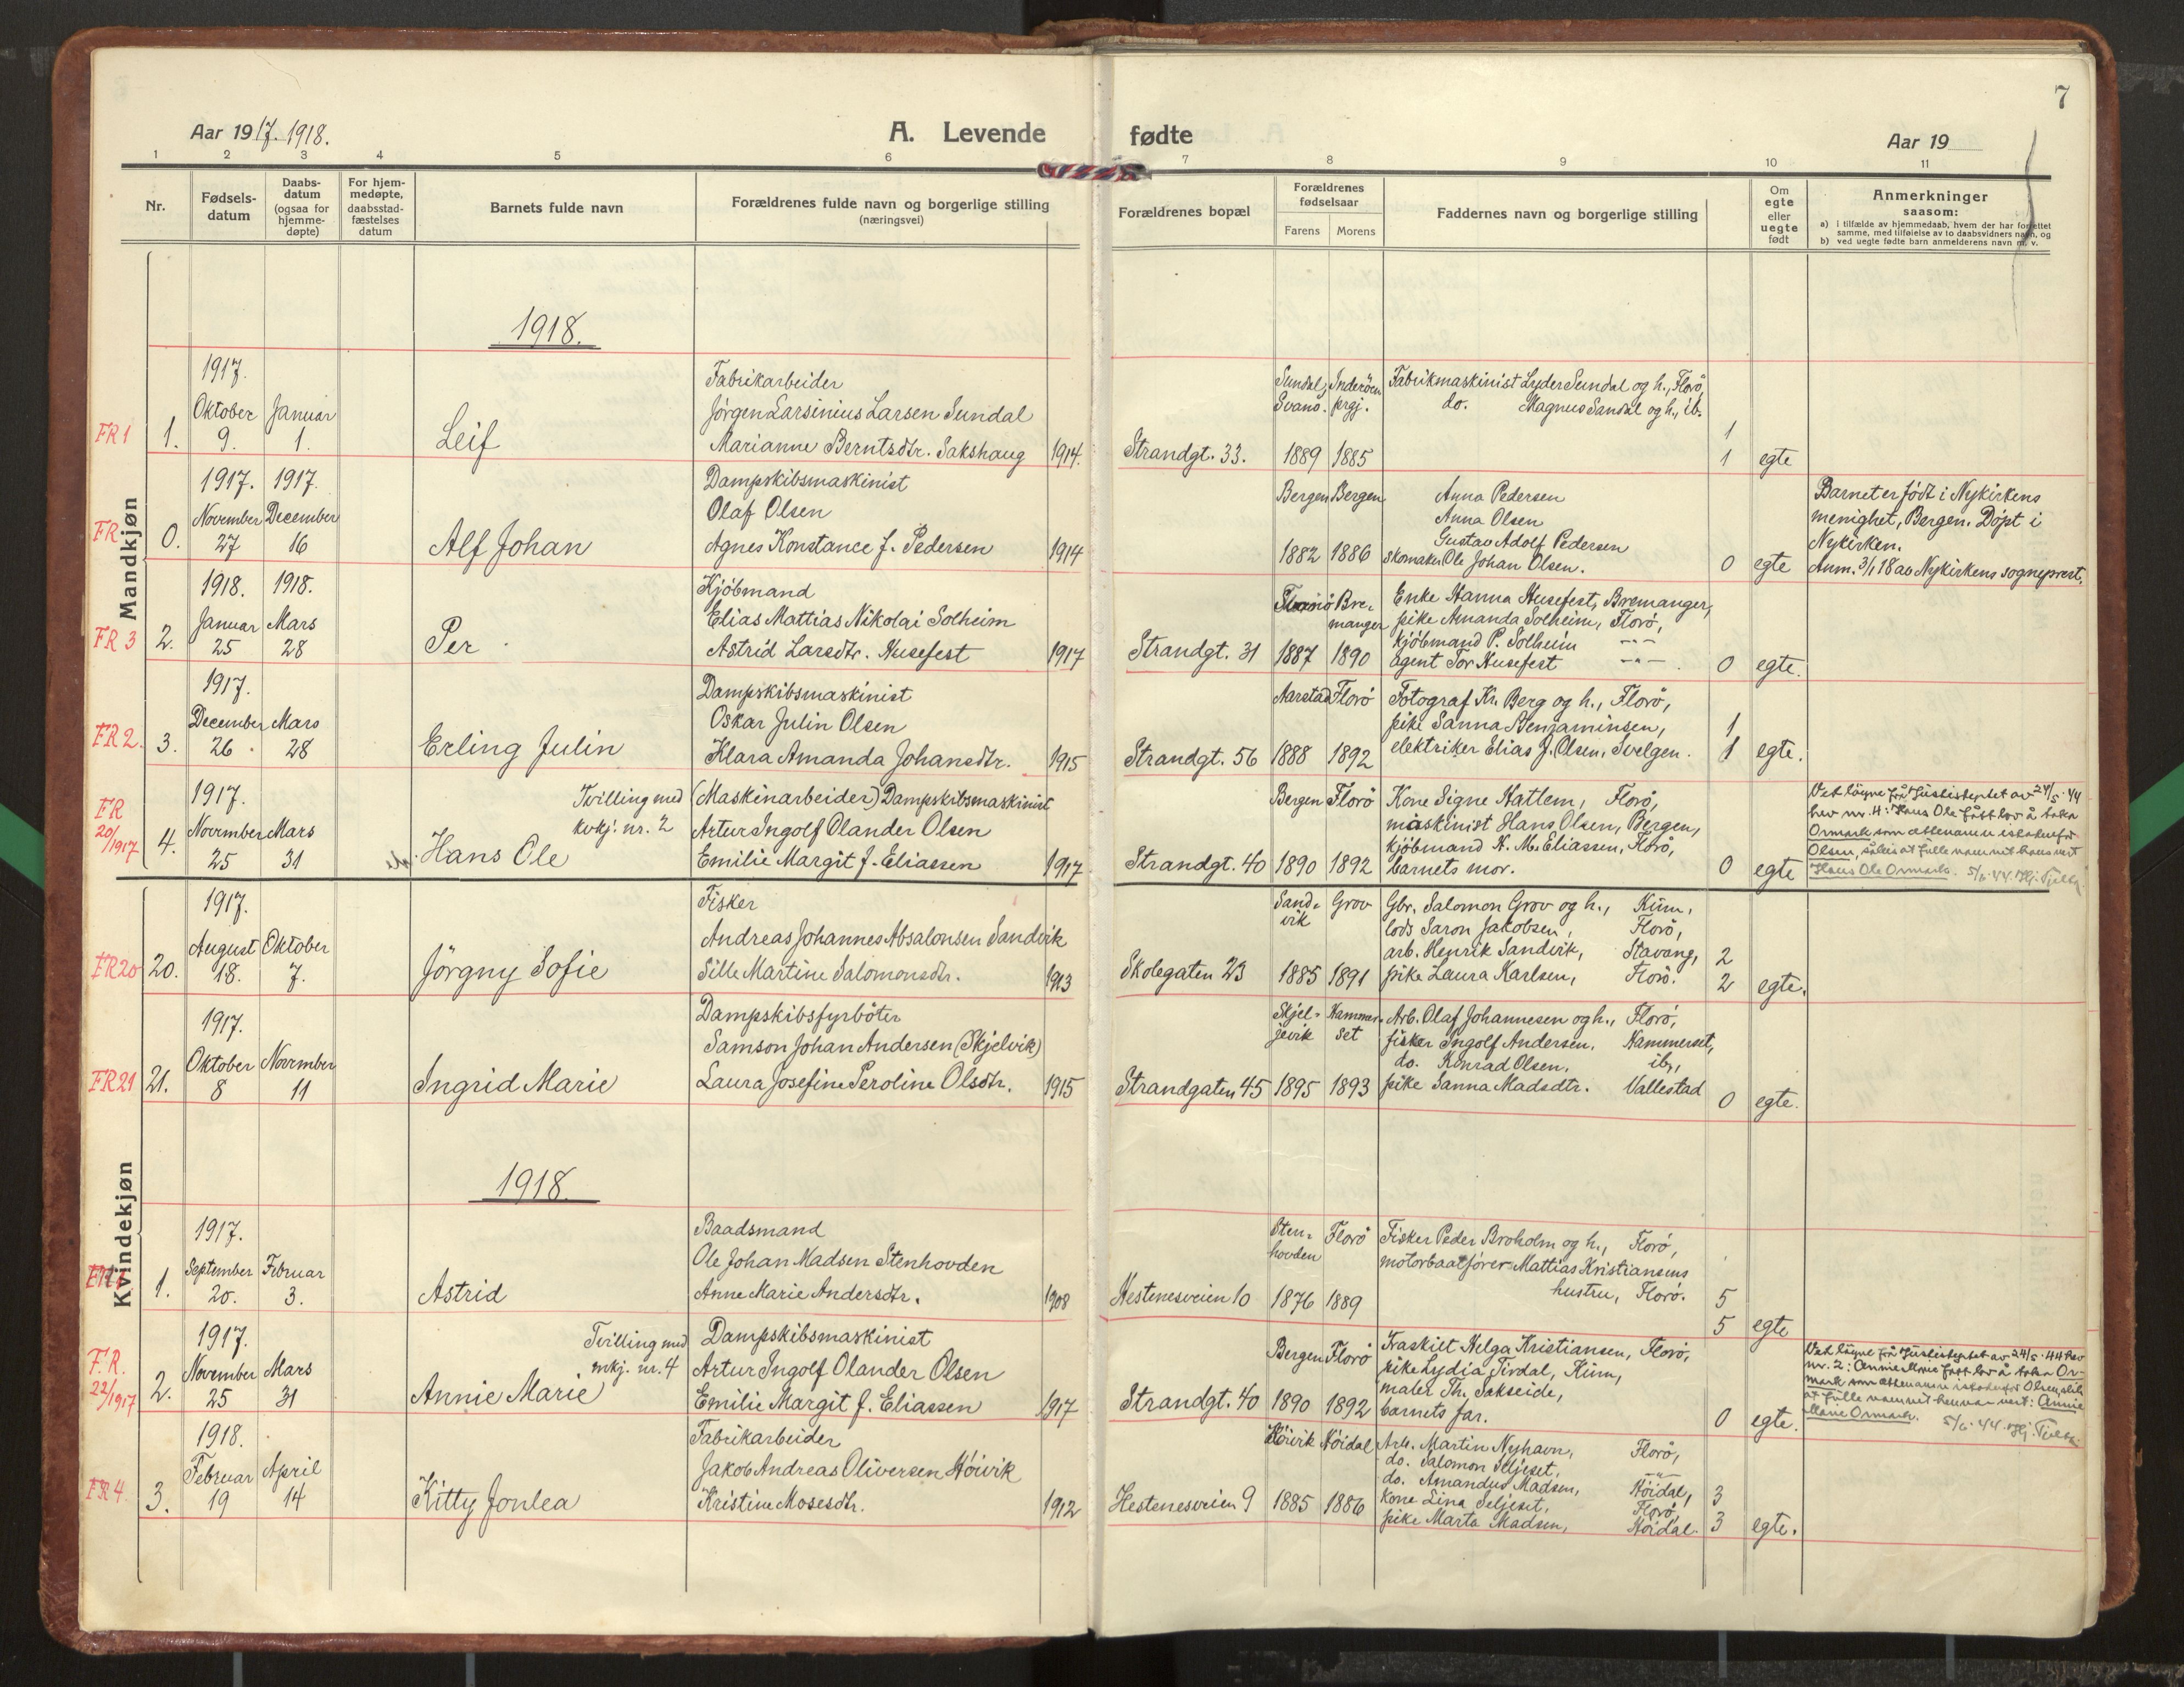 7
Aar 1917. 1918.
A. Levende fødte
Aar 19
1 2 3 4 5 6 7 8 9 10 11
Nr.
Fødsels-
datum
Daabs-
datum
(ogsaa for
hjemme-
døpte)
For hjem-
medøpte,
daabsstad-
fæstelses
datum
Barnets fulde navn
Forældrenes fulde navn og borgerlige stilling
(næringsvei)
Forældrenes bopæl
Forældrenes
fødselsaar
Farens Morens
Faddernes navn og borgerlige stilling
Om
egte
eller
uegte
født
Anmerkninger
saasom:
a) i tilfælde av hjemmedaab, hvem der har forrettet
samme, med tilføielse av to daabsvidners navn, og
b) ved uegte fødte barn anmelderens navn m. v.
Mandkjøn
1918.
FR 1
1.
1917.
Oktober
9.
Januar
1.
Leif
Fabrikarbeider
Jørgen Larsinius Larsen Sundal
Marianne Berntsdtr. Sakshaug 1914.
Strandgt. 33.
Sundal, Svanö. 1889
Inderöens prgj. 1885
Fabrikmaskinist Lyder Sundal og h., Florö,
do. Magnus Sandal og h., ib.
1
1 egte
FR
0.
1917.
November
27
1917.
December
16
Alf Johan
Dampskibsmaskinist
Olaf Olsen
Agnes Konstance f. Pedersen 1914
Bergen 1882
Bergen 1886
Anna Pedersen
Anna Olsen
Gustav Adolf Pedersen
skomaker Ole Johan Olsen.
0 egte
Barnet er födt i Nykirkens
menighet, Bergen. Döpt i
Nykirken.
Anm. 3/1 18 av Nykirkens sogneprest.
FR 3
2.
1918.
Januar
25
1918.
Mars
28
Per
Kjöbmand
Elias Mattias Nikolai Solheim
Astrid Larsdtr. Husefest 1917
Strandgt. 31
Florö 1887
Bremanger 1890
Enke Hanna Husefest, Bremanger,
pike Amanda Solheim, Florö,
kjöbmand P. Solheim -"-
agent Tor Husefest -"-.
0 egte.
FR 2.
3.
1917.
December
26
Mars
28
Erling Julin
Dampskibsmaskinist
Oskar Julin Olsen
Klara Amanda Johansdtr. 1915
Strandgt. 56
Aarstad 1888
Florö 1892
Fotograf Kr. Berg og h., Florö,
pike Sanna Benjaminsen,
elektriker Elias J. Olsen, Svelgen.
1
1 egte.
FR
20/1917
4.
1917.
November
25
Mars
31
Tvilling med
kvkj. nr. 2
Hans Ole
(Maskinarbeider) Dampskibsmaskinist
Artur Ingolf Olander Olsen
Emilie Margit f. Eliassen 1917
Strandgt. 40
Bergen 1890
Florö 1892
Kone Signe Hattem, Florö,
maskinist Hans Olsen, Bergen,
kjöbmand N. M. Eliassen, Florö,
barnets mor.
0 egte
Ved löyve frå Justisdeptet av 24/5-44
hev nr. 4: Hans Ole fått lov å taka
Ormark som ættenamn istadenfor
Olsen, såleis at fulle namnet hans vert
Hans Ole Ormark. 5/6-44.
Kvindekjøn
FR20
20.
1917.
August
18.
Oktober
7.
Jörgny Sofie
Fisker
Andreas Johannes Absalonsen Sandvik
Sille Martine Salomonsdtr. 1913
Skolegaten 23
Sandvik 1885
Grov 1891
Gbr. Salomon Grov og h., Kinn,
lods Saron Jakobsen, Florö,
arb. Henrik Sandvik, Stavang,
pike Laura Karlsen, Florö.
2
2 egte.
FR21
21.
1917.
Oktober
8
November
11
Ingrid Marie
Dampskibsfyrböter
Samson Johan Andersen (Skjelvik)
Laura Josefine Peroline Olsdtr. 1915
Strandgaten 45
Skjeljevik 1895
Hammerset 1893
Arb. Olaf Johannesen og h., Florö,
fisker Ingolf Andersen, Hammerset,
do. Konrad Olsen, ib.,
pike Sanna Madsdtr. Vallestad
0 egte.
1918.
1.
1917.
September
20.
Februar
3.
Astrid
Baadsmand
Ole Johan Madsen Stenhovden
Anne Marie Andersdtr. 1908
Hestenesveien 10
Stenhovden 1876
Florö 1889
Fisker Peder Broholm og h., Florö,
motorbaatförer Mattias Kristiansens
hustru, Florö.
5
5 egte
F.R.
22/1917
2.
1917.
November
25
Mars
31
Tvilling med
mkj. nr. 4
Annie Marie
Dampskibsmaskinist
Artur Ingolf Olander Olsen
Emilie Margit f. Eliassen 1917
Strandgt. 40
Bergen 1890
Florö 1892
Fraskilt Helga Kristiansen, Florö,
pike Lydia Tirdal, Kinn,
maler Th. Sakseide,
barnets far.
0 egte.
Ved löyve frå Justisdeptet av 24/5-44 hev
nr. 2: Annie Marie fått lov å taka Or-
mark som ættenamn istadenfor Olsen, slik
at fulle namnet hennar vert: Annie
Marie Ormark. 5/6-44.
FR 4.
3.
1918.
Februar
19
April
14
Kitty Jonlea
Fabrikarbeider
Jakob Andreas Oliversen Höivik
Kristine Mosesdtr. 1912
Hestenesveien 9
Höivik 1885
Höidal 1886
Arb. Martin Nyhavn, Florö,
do. Salomon Seljeset, -"-
do. Amandus Madsen, Höidal,
kone Lina Seljeset, Florö,
pike Marta Madsen, Höidal.
3
3 egte.